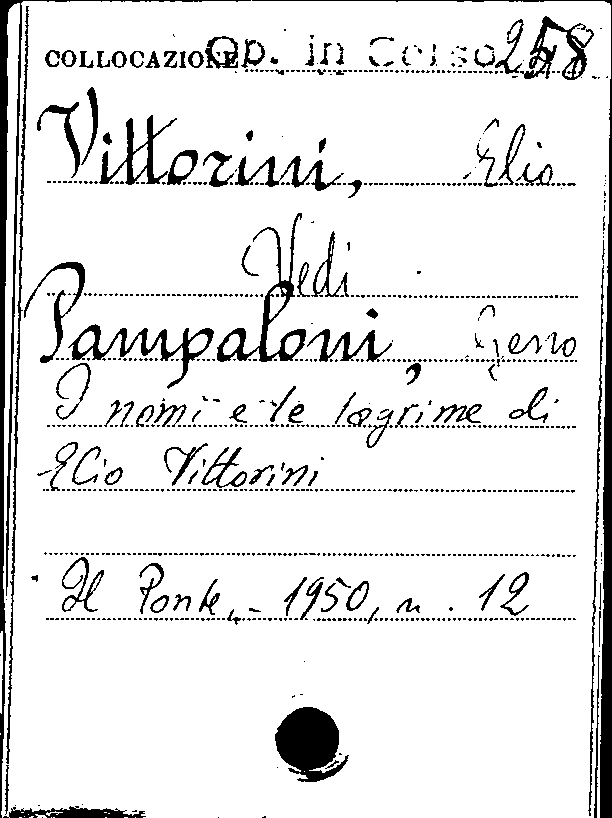 COLLOCAZIONE Op. in Corso 258
Vittorini, Elio
Vedi
Pampaloni, Geno
I nomi e le lagrime di
Elio Vittorini
Il Ponte, - 1950, n. 12